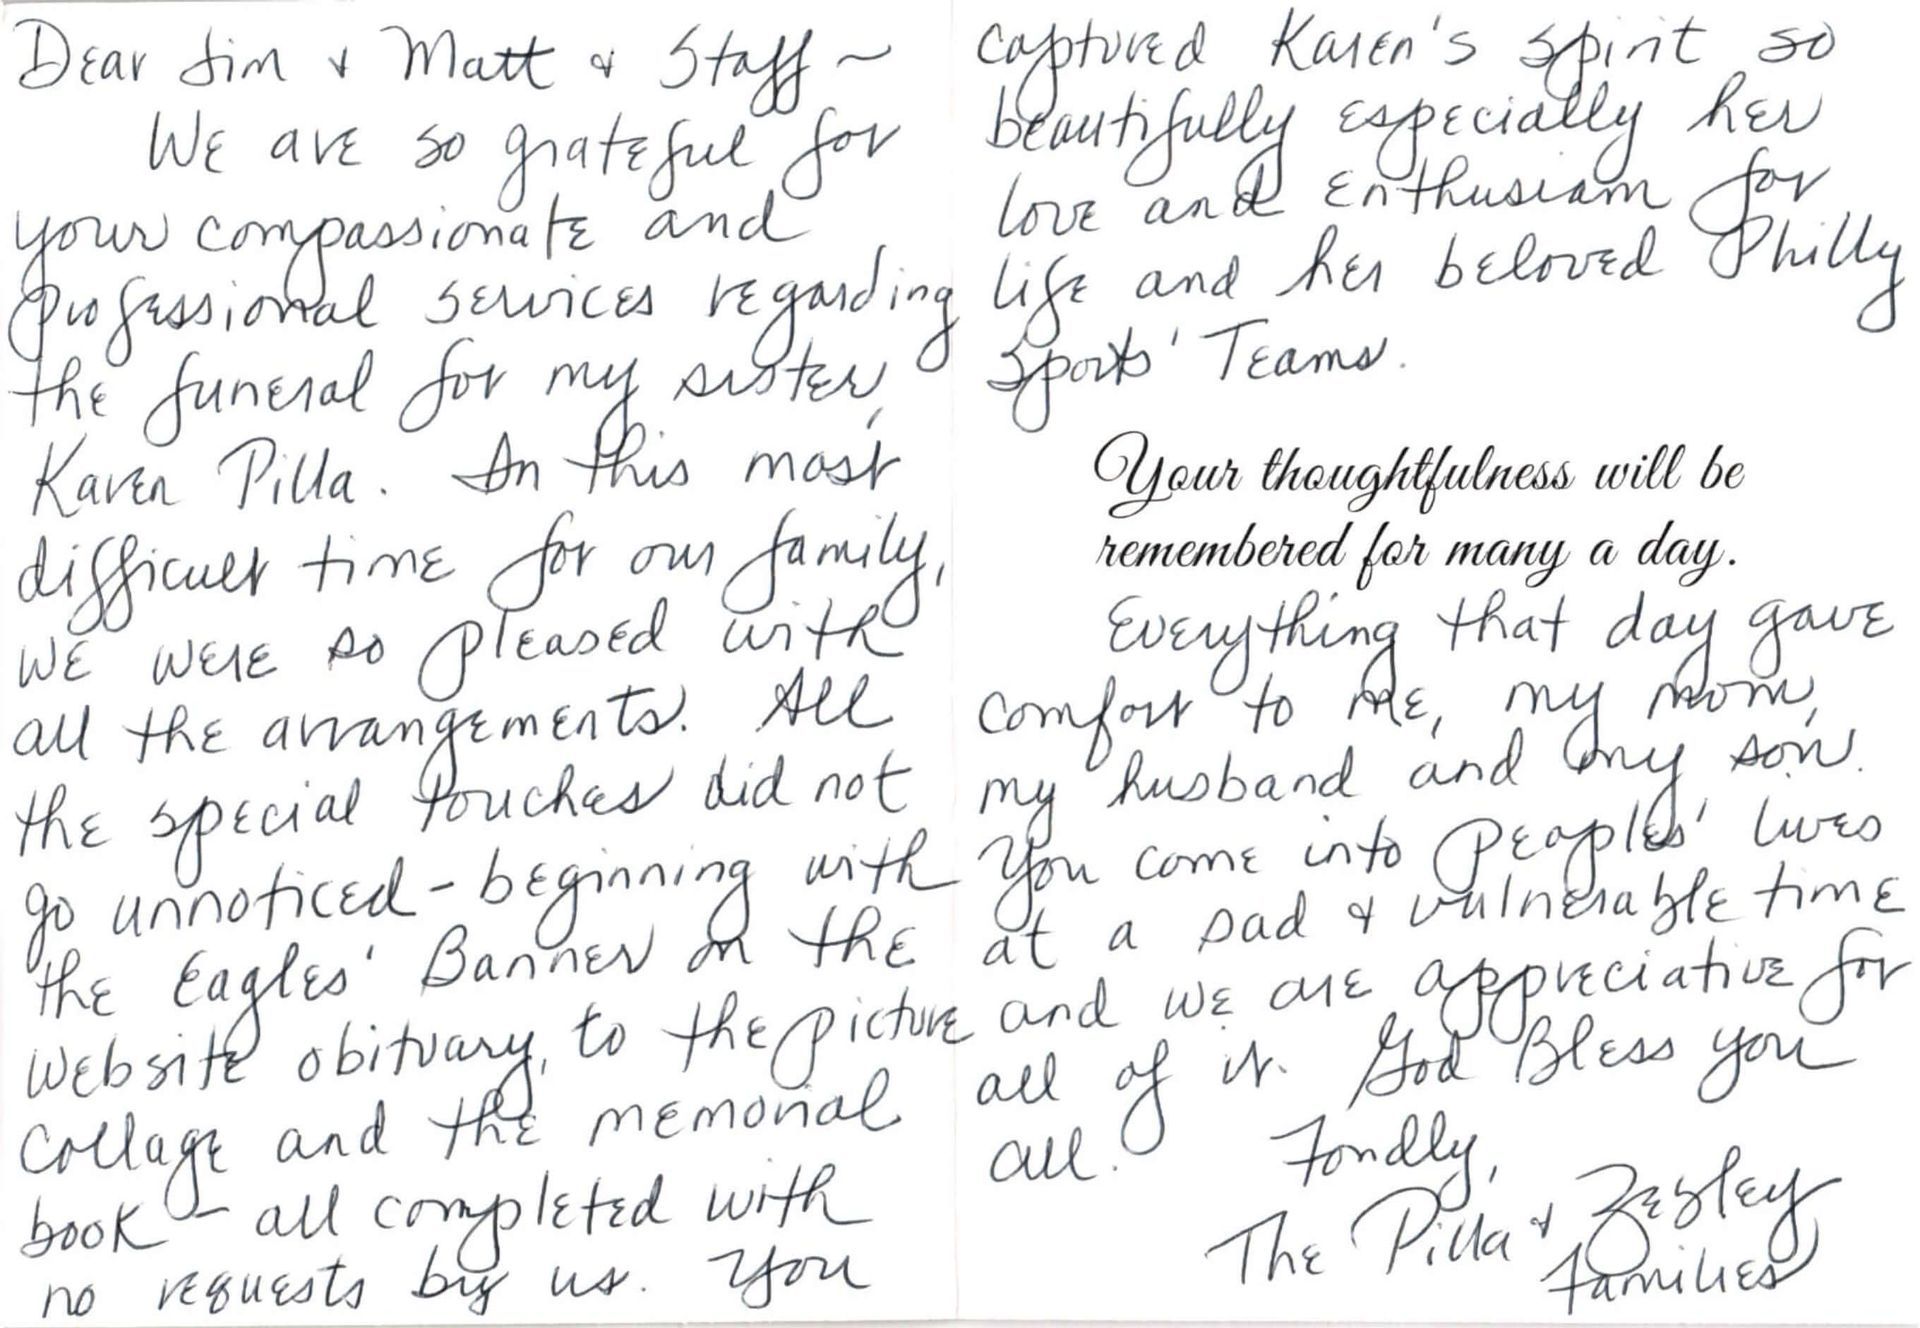 Dear Jim & Matt & Staff ~
We are so grateful for
your compassionate and
professional services regarding
the funeral for my sister,
Karen Pilla. In this most
difficult time for our family,
we were so pleased with
all the arrangements. All
the special touches did not
go unnoticed - beginning with
the Eagles' Banner on the
website obituary, to the picture
collage and the memorial
book - all completed with
no requests by us. You
captured Karen's spirit so
beautifully especially her
love and enthusiam for
life and her beloved Philly
Sports' Teams.
Your thoughtfulness will be
remembered for many a day.
Everything that day gave
comfort to me, my mom,
my husband and my son.
You come into peoples' lives
at a sad & vulnerable time
and we are appreciative for
all of it. God Bless you
all. Fondly,
The Pilla & Zegley
Families